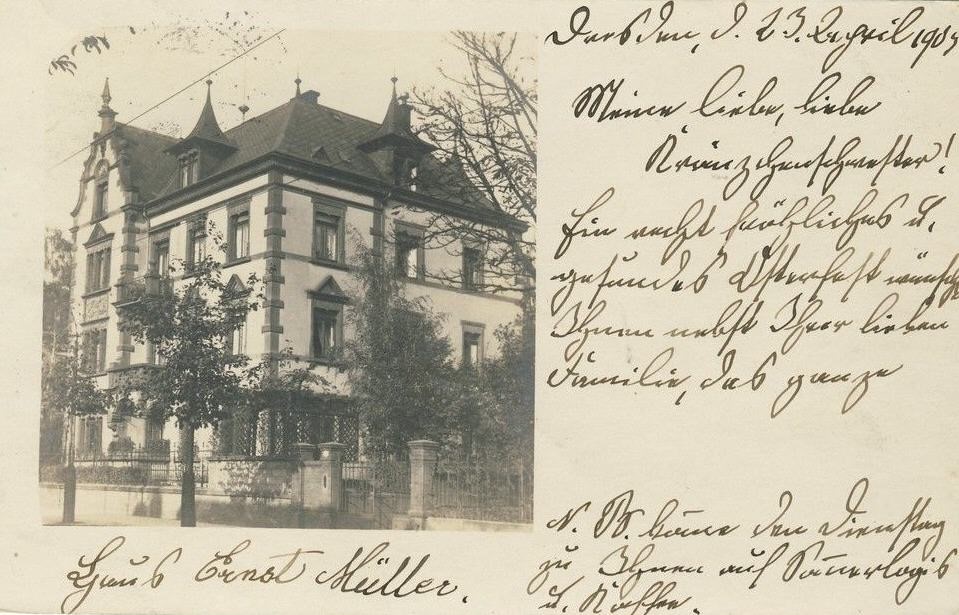 Dresden, d. 23. April 190
Meine liebe, liebe
Kränzchenschwester!
Ein recht fröhliches u.
gesundes Osterfest wünscht
Ihnen nebst Ihrer lieben
Familie, das ganze
Haus Ernst Müller.
N. B. komme den Dienstag
zu Ihnen auf
u. Kaffee.